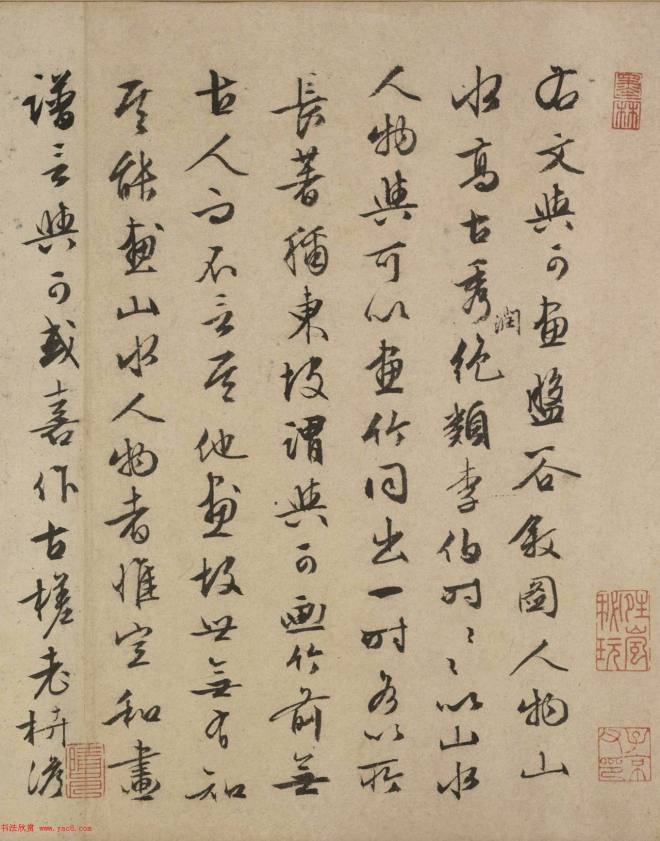 右文與可畫盤谷叙圖人物山
水高古秀潤絶類李伯時〻〻以山水
人物與可以畫竹同出一時各以所
長著稱東坡謂與可画竹前無
古人而不言其他畫故世無有知
其能畫山水人物者惟宣和畫
譜言與可或喜作古槎老枿淡
墨林
子京父印
书法欣赏 www.yac8.com